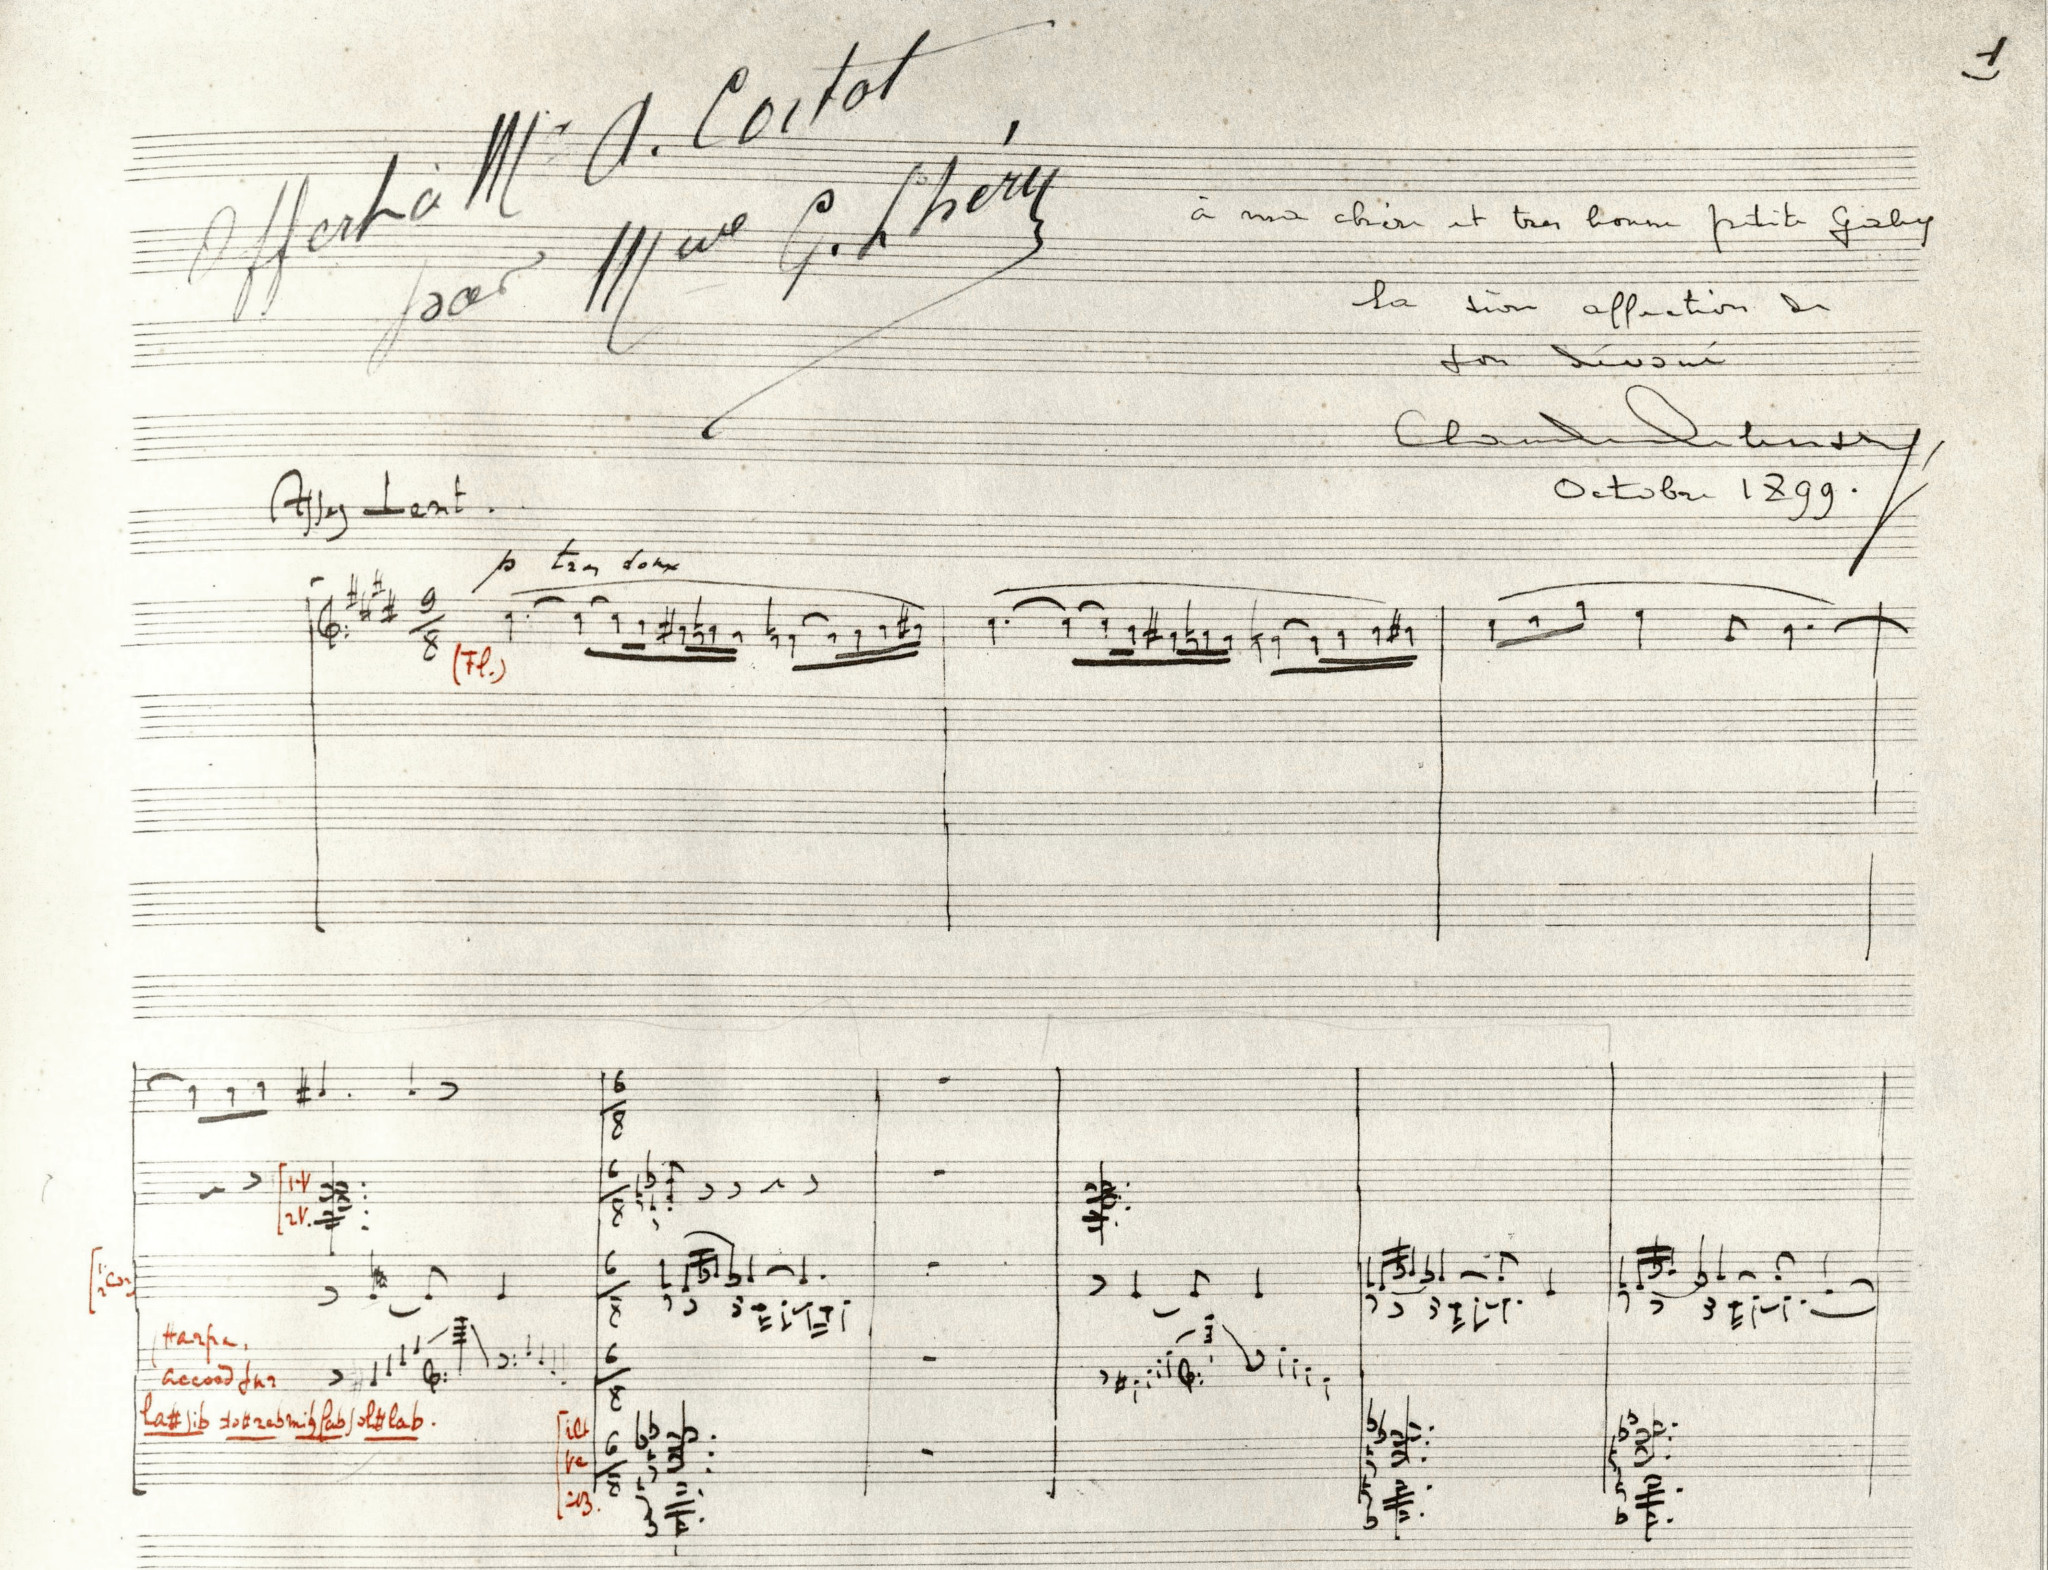 1
Offert à Mr A. Cortot
par Mme G. Lhéry
à ma chère et très bonne petite Gaby
la sûre affection de
son dévoué
Claude Debussy
Octobre 1899.
Assez Lent.
p très doux
9
8
(Fl.)
6
8
[1.V
2V.
6
8
[1 2 Cor
6
8
Harpe.
accord sur
6
8
la# sib do# reb mi♮ fab sol# lab.
6
8